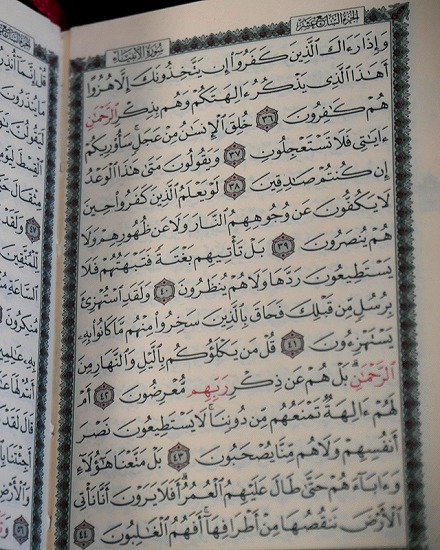 الجزء السابع عشر
سورة الأنبياء
وَإِذَا رَءَاكَ ٱلَّذِينَ كَفَرُوٓا۟ إِن يَتَّخِذُونَكَ إِلَّا هُزُوًا
أَهَٰذَا ٱلَّذِى يَذْكُرُ ءَالِهَتَكُمْ وَهُم بِذِكْرِ ٱلرَّحْمَٰنِ
هُمْ كَٰفِرُونَ ٣٦ خُلِقَ ٱلْإِنسَٰنُ مِنْ عَجَلٍ سَأُو۟رِيكُمْ
ءَايَٰتِى فَلَا تَسْتَعْجِلُونِ ٣٧ وَيَقُولُونَ مَتَىٰ هَٰذَا ٱلْوَعْدُ
إِن كُنتُمْ صَٰدِقِينَ ٣٨ لَوْ يَعْلَمُ ٱلَّذِينَ كَفَرُوا۟ حِينَ
لَا يَكُفُّونَ عَن وُجُوهِهِمُ ٱلنَّارَ وَلَا عَن ظُهُورِهِمْ وَلَا
هُمْ يُنصَرُونَ ٣٩ بَلْ تَأْتِيهِم بَغْتَةً فَتَبْهَتُهُمْ فَلَا
يَسْتَطِيعُونَ رَدَّهَا وَلَا هُمْ يُنظَرُونَ ٤٠ وَلَقَدِ ٱسْتُهْزِئَ
بِرُسُلٍ مِّن قَبْلِكَ فَحَاقَ بِٱلَّذِينَ سَخِرُوا۟ مِنْهُم مَّا كَانُوا۟ بِهِۦ
يَسْتَهْزِءُونَ ٤١ قُلْ مَن يَكْلَؤُكُم بِٱلَّيْلِ وَٱلنَّهَارِ مِنَ
ٱلرَّحْمَٰنِ بَلْ هُمْ عَن ذِكْرِ رَبِّهِم مُّعْرِضُونَ ٤٢ أَمْ
لَهُمْ ءَالِهَةٌ تَمْنَعُهُم مِّن دُونِنَا لَا يَسْتَطِيعُونَ نَصْرَ
أَنفُسِهِمْ وَلَا هُم مِّنَّا يُصْحَبُونَ ٤٣ بَلْ مَتَّعْنَا هَٰٓؤُلَآءِ
وَءَابَآءَهُمْ حَتَّىٰ طَالَ عَلَيْهِمُ ٱلْعُمُرُ أَفَلَا يَرَوْنَ أَنَّا نَأْتِى
ٱلْأَرْضَ نَنقُصُهَا مِنْ أَطْرَافِهَآ أَفَهُمُ ٱلْغَٰلِبُونَ ٤٤